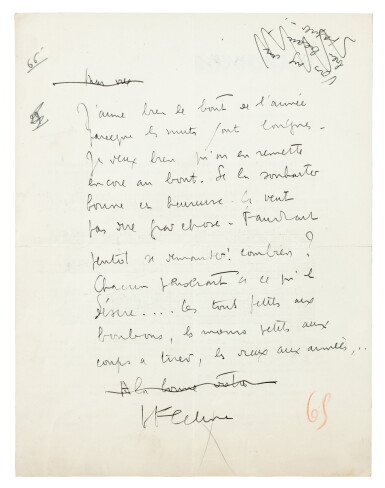 65
J'aime bien le bout de l'année
parceque les nuits sont longues -
Je veux bien qu'on en remette
encore au bout. Se la souhaiter
bonne et heureuse ça veut
pas dire grand chose - Faudrait
plutôt se demander! combien?
Chacun penserait à ce qu'il
désire.... les tout petits aux
bonbons, les moins petits aux
coups à tirer, les vieux aux années,..
A la bonne
LF Celine
65